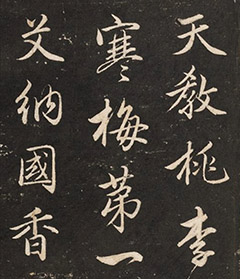 天教桃李
寒梅第一
艾納國香